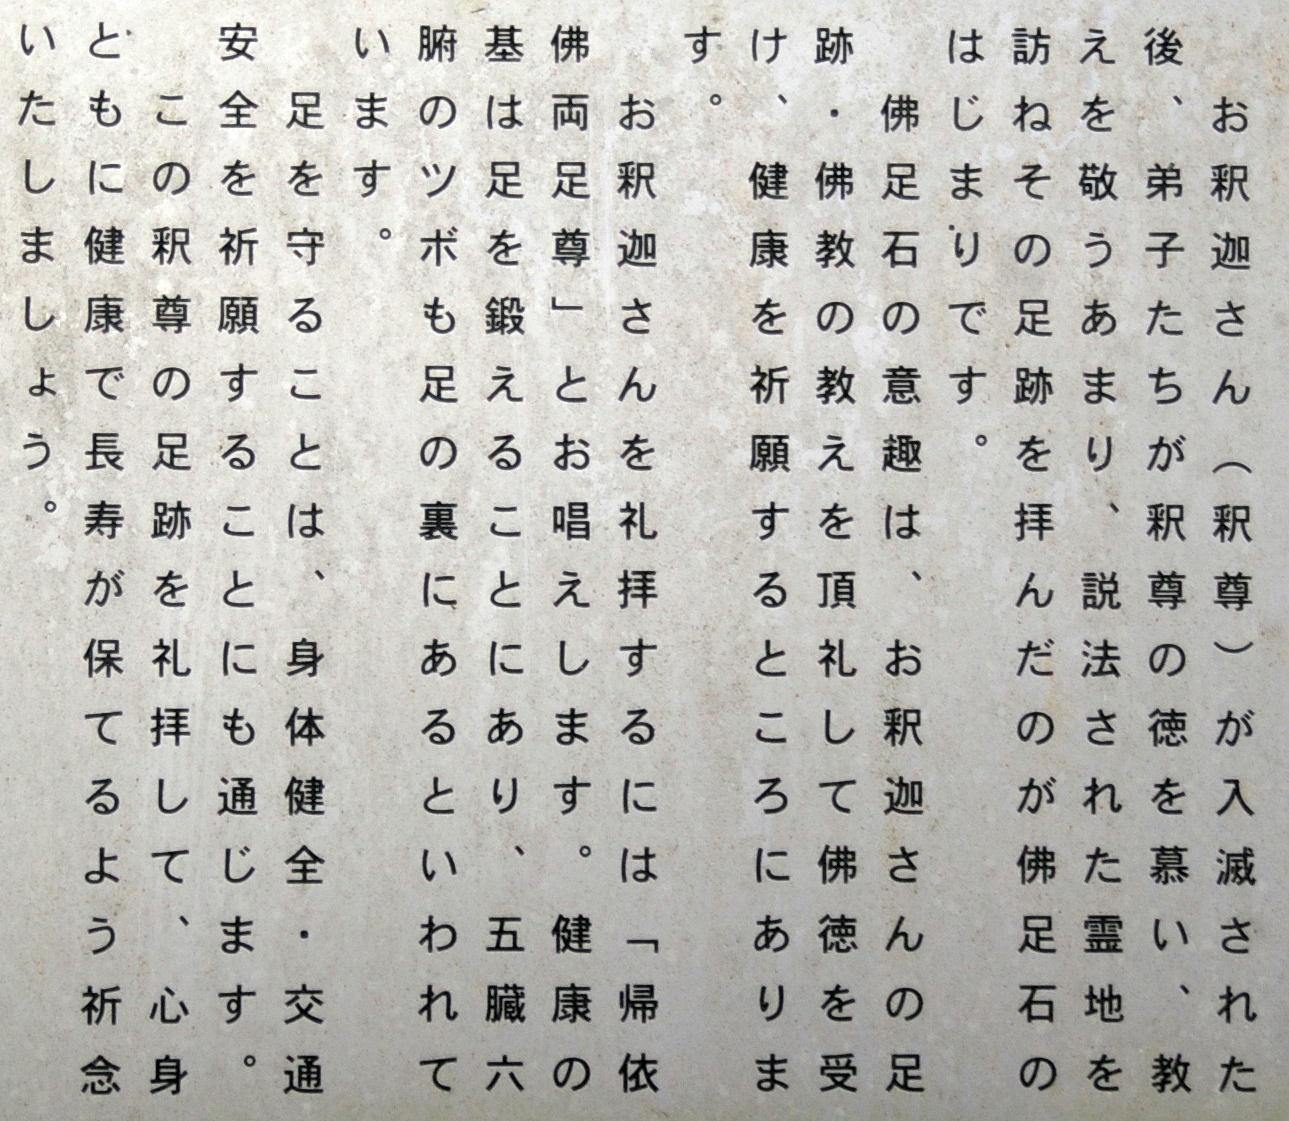 お釈迦さん（釈尊）が入滅された
後、弟子たちが釈尊の徳を慕い、教
えを敬うあまり、説法された霊地を
訪ねその足跡を拝んだのが佛足石の
はじまりです。
佛足石の意趣は、お釈迦さんの足
跡・佛教の教えを頂礼して佛徳を受
け、健康を祈願するところにありま
す。
お釈迦さんを礼拝するには「帰依
佛両足尊」とお唱えします。健康の
基は足を鍛えることにあり、五臓六
腑のツボも足の裏にあるといわれて
います。
足を守ることは、身体健全・交通
安全を祈願することにも通じます。
この釈尊の足跡を礼拝して、心身
ともに健康で長寿が保てるよう祈念
いたしましょう。